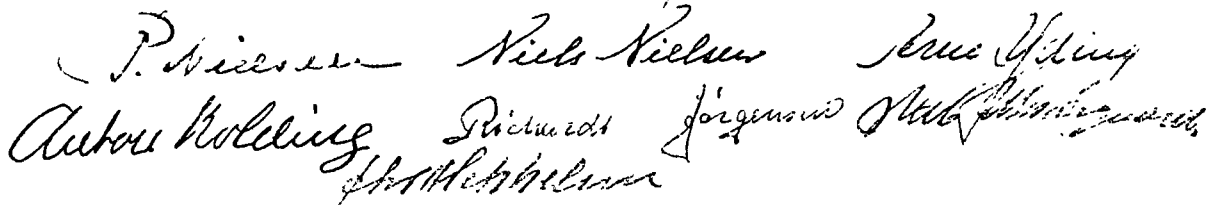 P. Nielsen Niels Nielsen Arne Yding
Anton Kolding Richardt Jörgensen